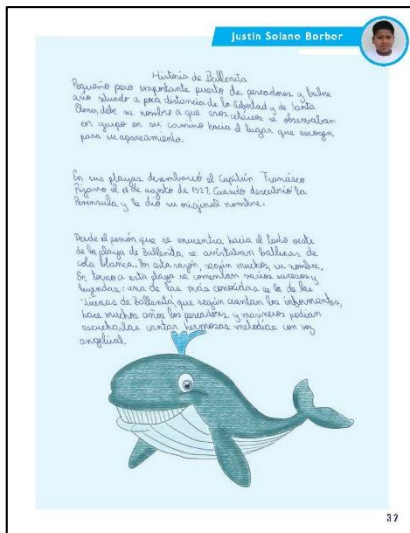 Justin Solano Borbor
Historia de Ballenita
Pequeño pero importante puerto de pescadores y balne
ario situado a poca distancia de la libertad y de Santa
Elena, debe su nombre a que esos cetáceos se observaban
en grupo en su camino hacia el lugar que escogen
para su apareamiento.
En sus playas desembarcó el capitán Francisco
Pizarro el 18 de agosto de 1527. Cuando descubrió la
Península y le dió su original nombre.
Desde el peñón que se encuentra hacia el lado oeste
de la playa de Ballenita se avistaban ballenas de
cola blanca. Por esta razón, según muchos, su nombre.
En torno a esta playa se comentan varios sucesos y
leyendas: una de las más conocidas es la de las
"sirenas de Ballenita", que según cuentan los informantes,
hace muchos años los pescadores y marineros podían
escucharlas cantar hermosas melodías con voz
angelical.
37